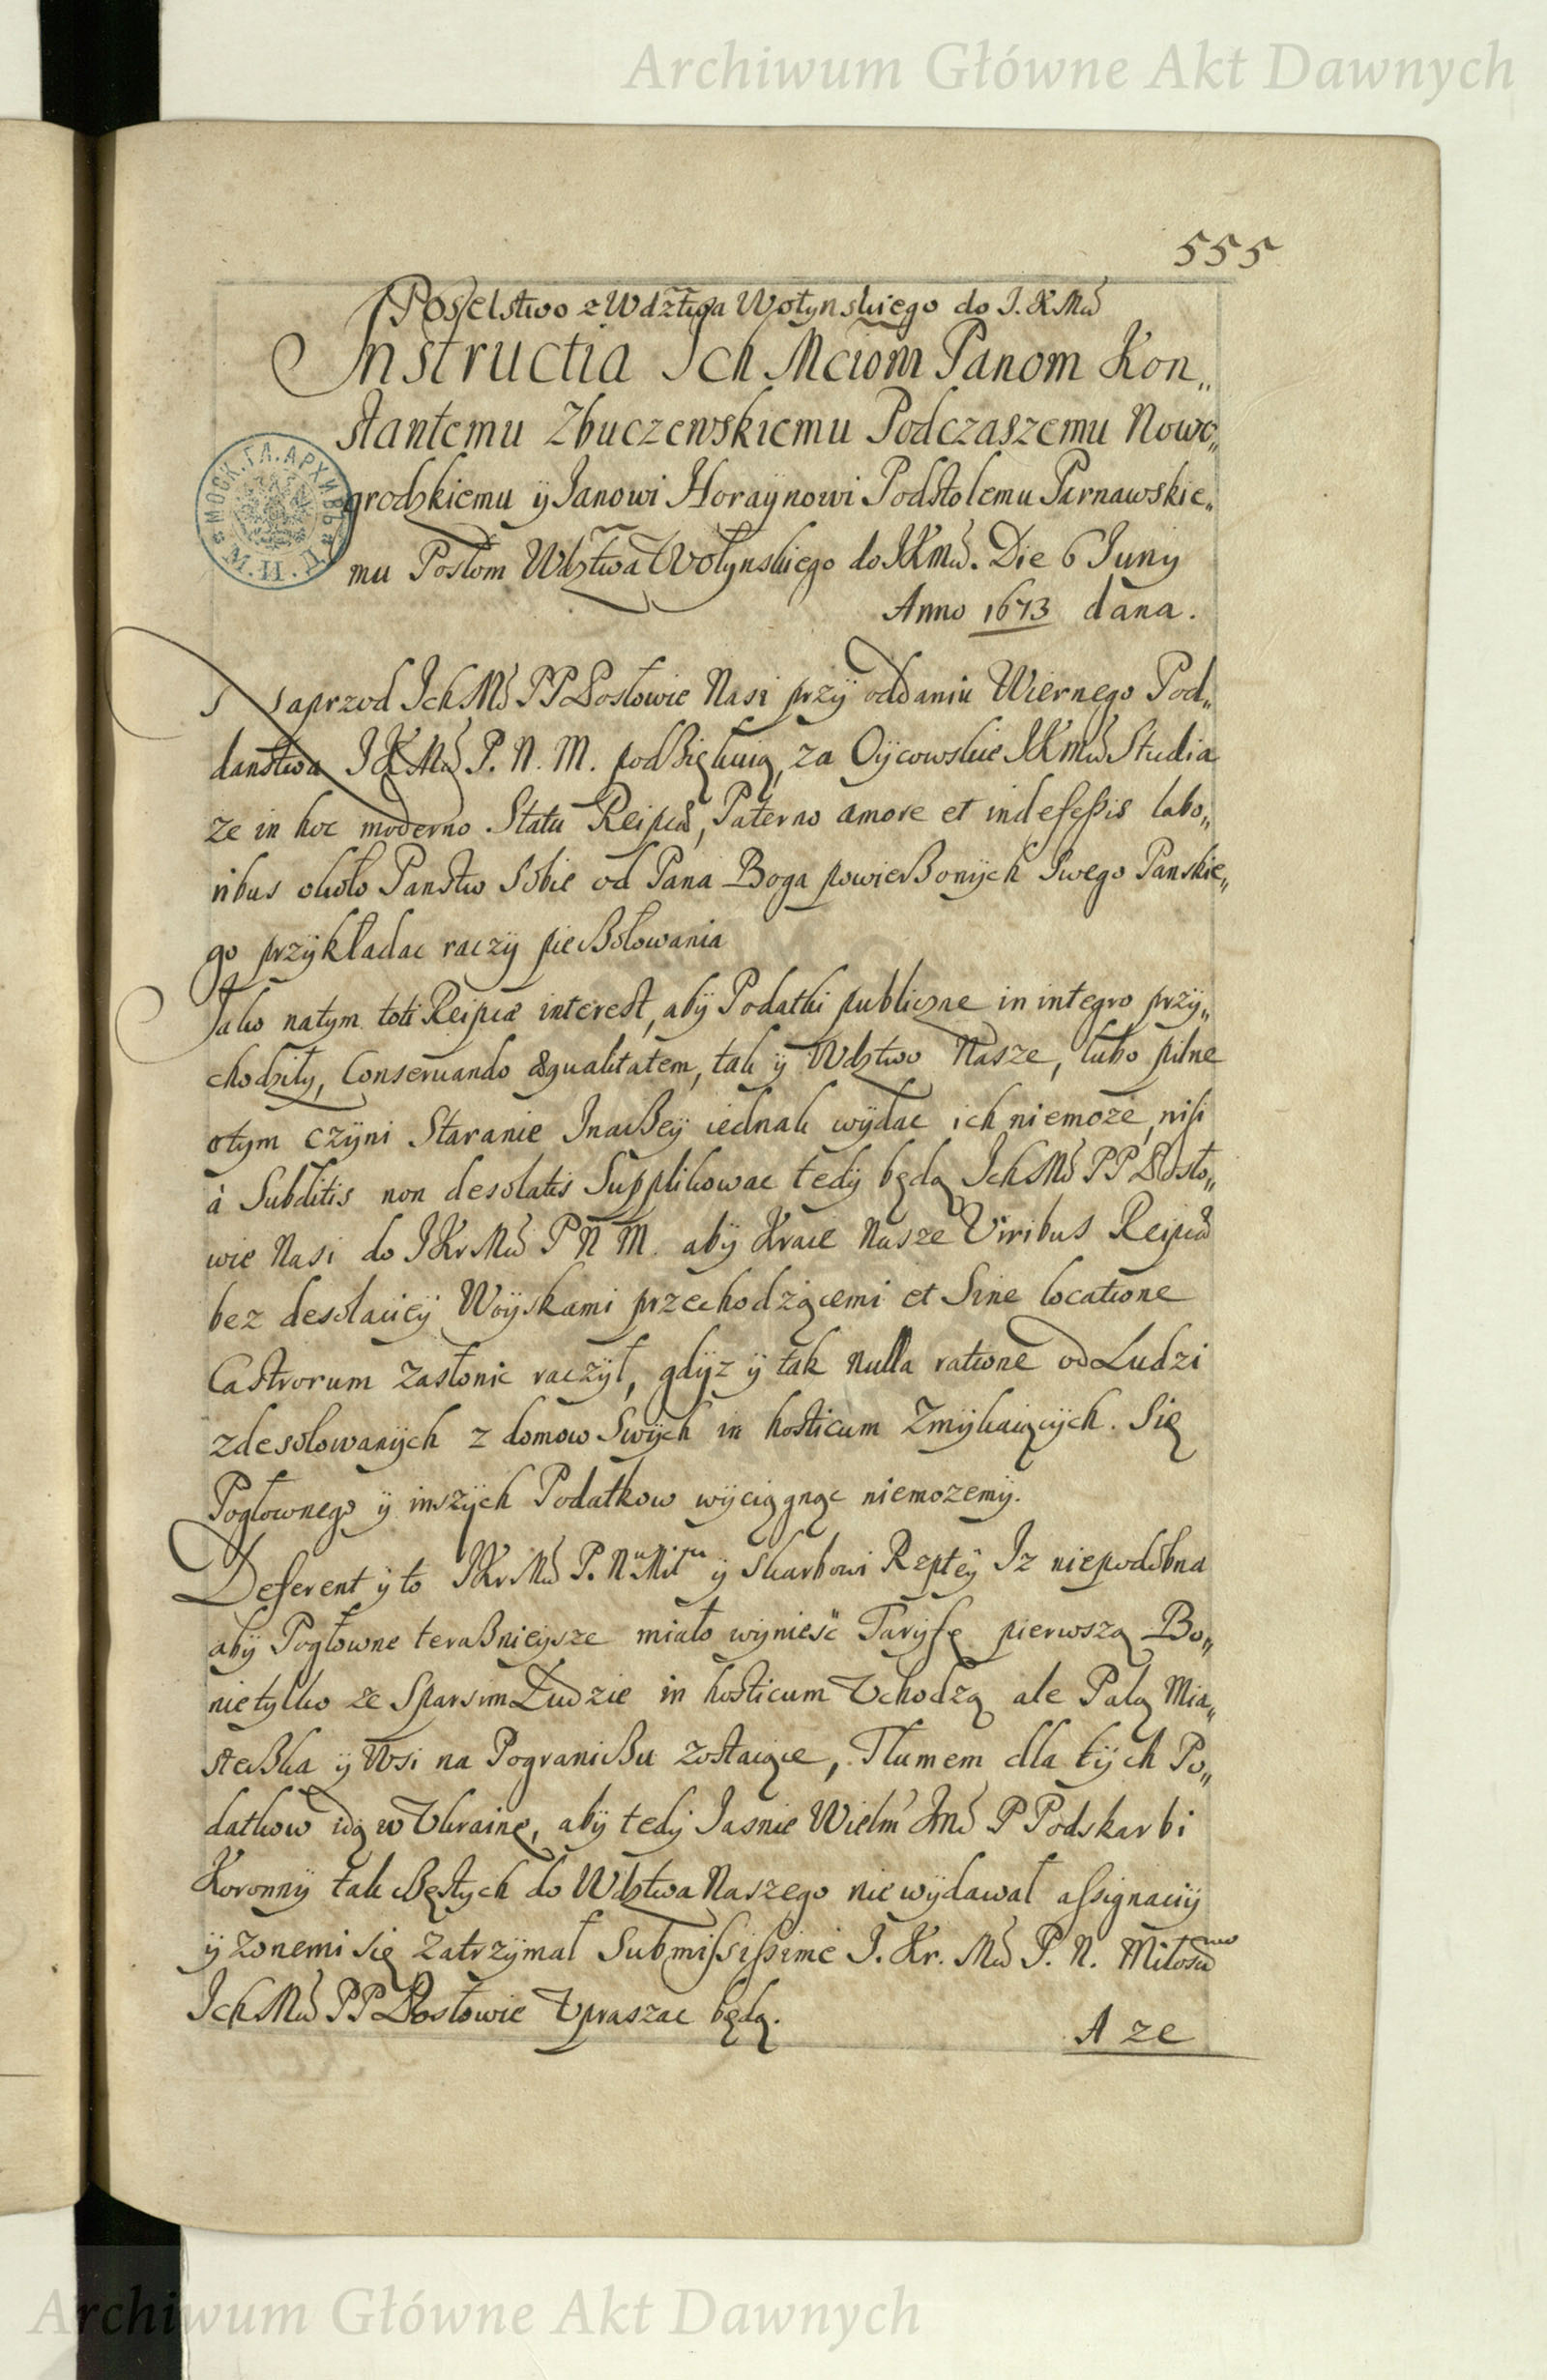 Archiwum Główne Akt Dawnych
555
Poselstwo z Wdztwa Wołynskiego do J. K Mci
Instructia Ich Mciom Panom Kon„
stantemu Zbuczewskiemu Podczaszemu Nowo„
grodzkiemu ÿ Janowi Horaÿnowi Podstolemu Parnawskie„
mu Posłom Wdztwa Wołynskiego do JKMci. Die 6 Juny
Anno 1673 dana.
Naprzod Ich Mć PP Posłowie Nasi przÿ oddaniu Wiernego Pod„
danstwa J K Mci P. N. M. podźiękuią, za Oÿcowskie JKMci Studia
ze in hoc moderno Statu Reipcæ, Paterno amore et indefessis labo„
ribus około Panstw Sobie od Pana Boga powierzonÿch Swego Panskie„
go przÿkładac raczÿ pieczołowania
Jako natym toti Reipcæ interest, abÿ Podatki publiczne in integro przÿ„
chodziły, Conseruando æqualitatem, tak ÿ Wdztwo Nasze, lubo pilne
otym czÿni Staranie Inaczeÿ iednak wÿdac ich niemoze, nisi
à Subditis non desolatis Supplikowac tedÿ będą Ich Mć PP Posło„
wie Nasi do JKrMci P N M. abÿ Kraie Nasze Viribus Reipcæ
bez desolacieÿ Woÿskami przechodzącemi et Sine locatione
Castrorum zasłonic raczÿł, gdÿz ÿ tak nulla ratione od Ludzi
zdesolowanÿch z domow Swÿch in hosticum Zmÿkaiącÿch. Się
Pogłownego ÿ inszÿch Podatkow wÿciągnąc niemozemÿ.
Deferent ÿ to JKrMci P. N. Miłmu ÿ Skarbowi Rzpteÿ Iz niepodobna
abÿ Pogłowne teraznieÿsze miało wÿnieść Taryfę pierwszą Bo„
nietylko ze Sparsim Ludzie in hosticum Vchodzą ale Palą Mia„
steczka ÿ Wsi na Pograniczu zostaiące, Tlumem dla tÿch Po„
datkow idą w Vkrainę, abÿ tedÿ Jasnie Wielm Jmć P Podskarbi
Koronnÿ tak częstych do Wdztwa Naszego nie wÿdawał assignaciÿ
ÿ zonemi się zatrzÿmał Submississime J. Kr. Mci P. N. Miłosciwo
Ich Mć PP Posłowie Vpraszac będą.
A ze
Archiwum Główne Akt Dawnych